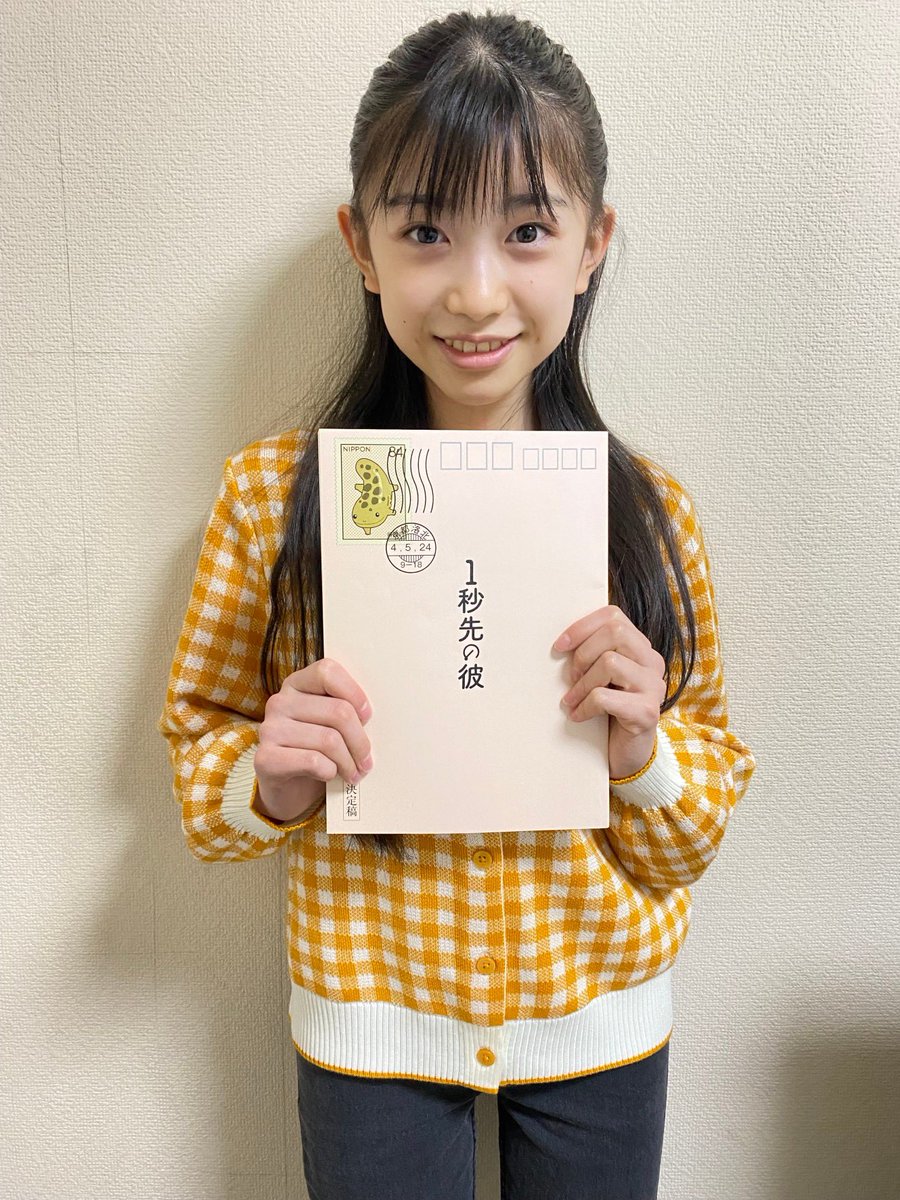 NIPPON 84
4.5.24
9-18
1秒先の彼
決定稿